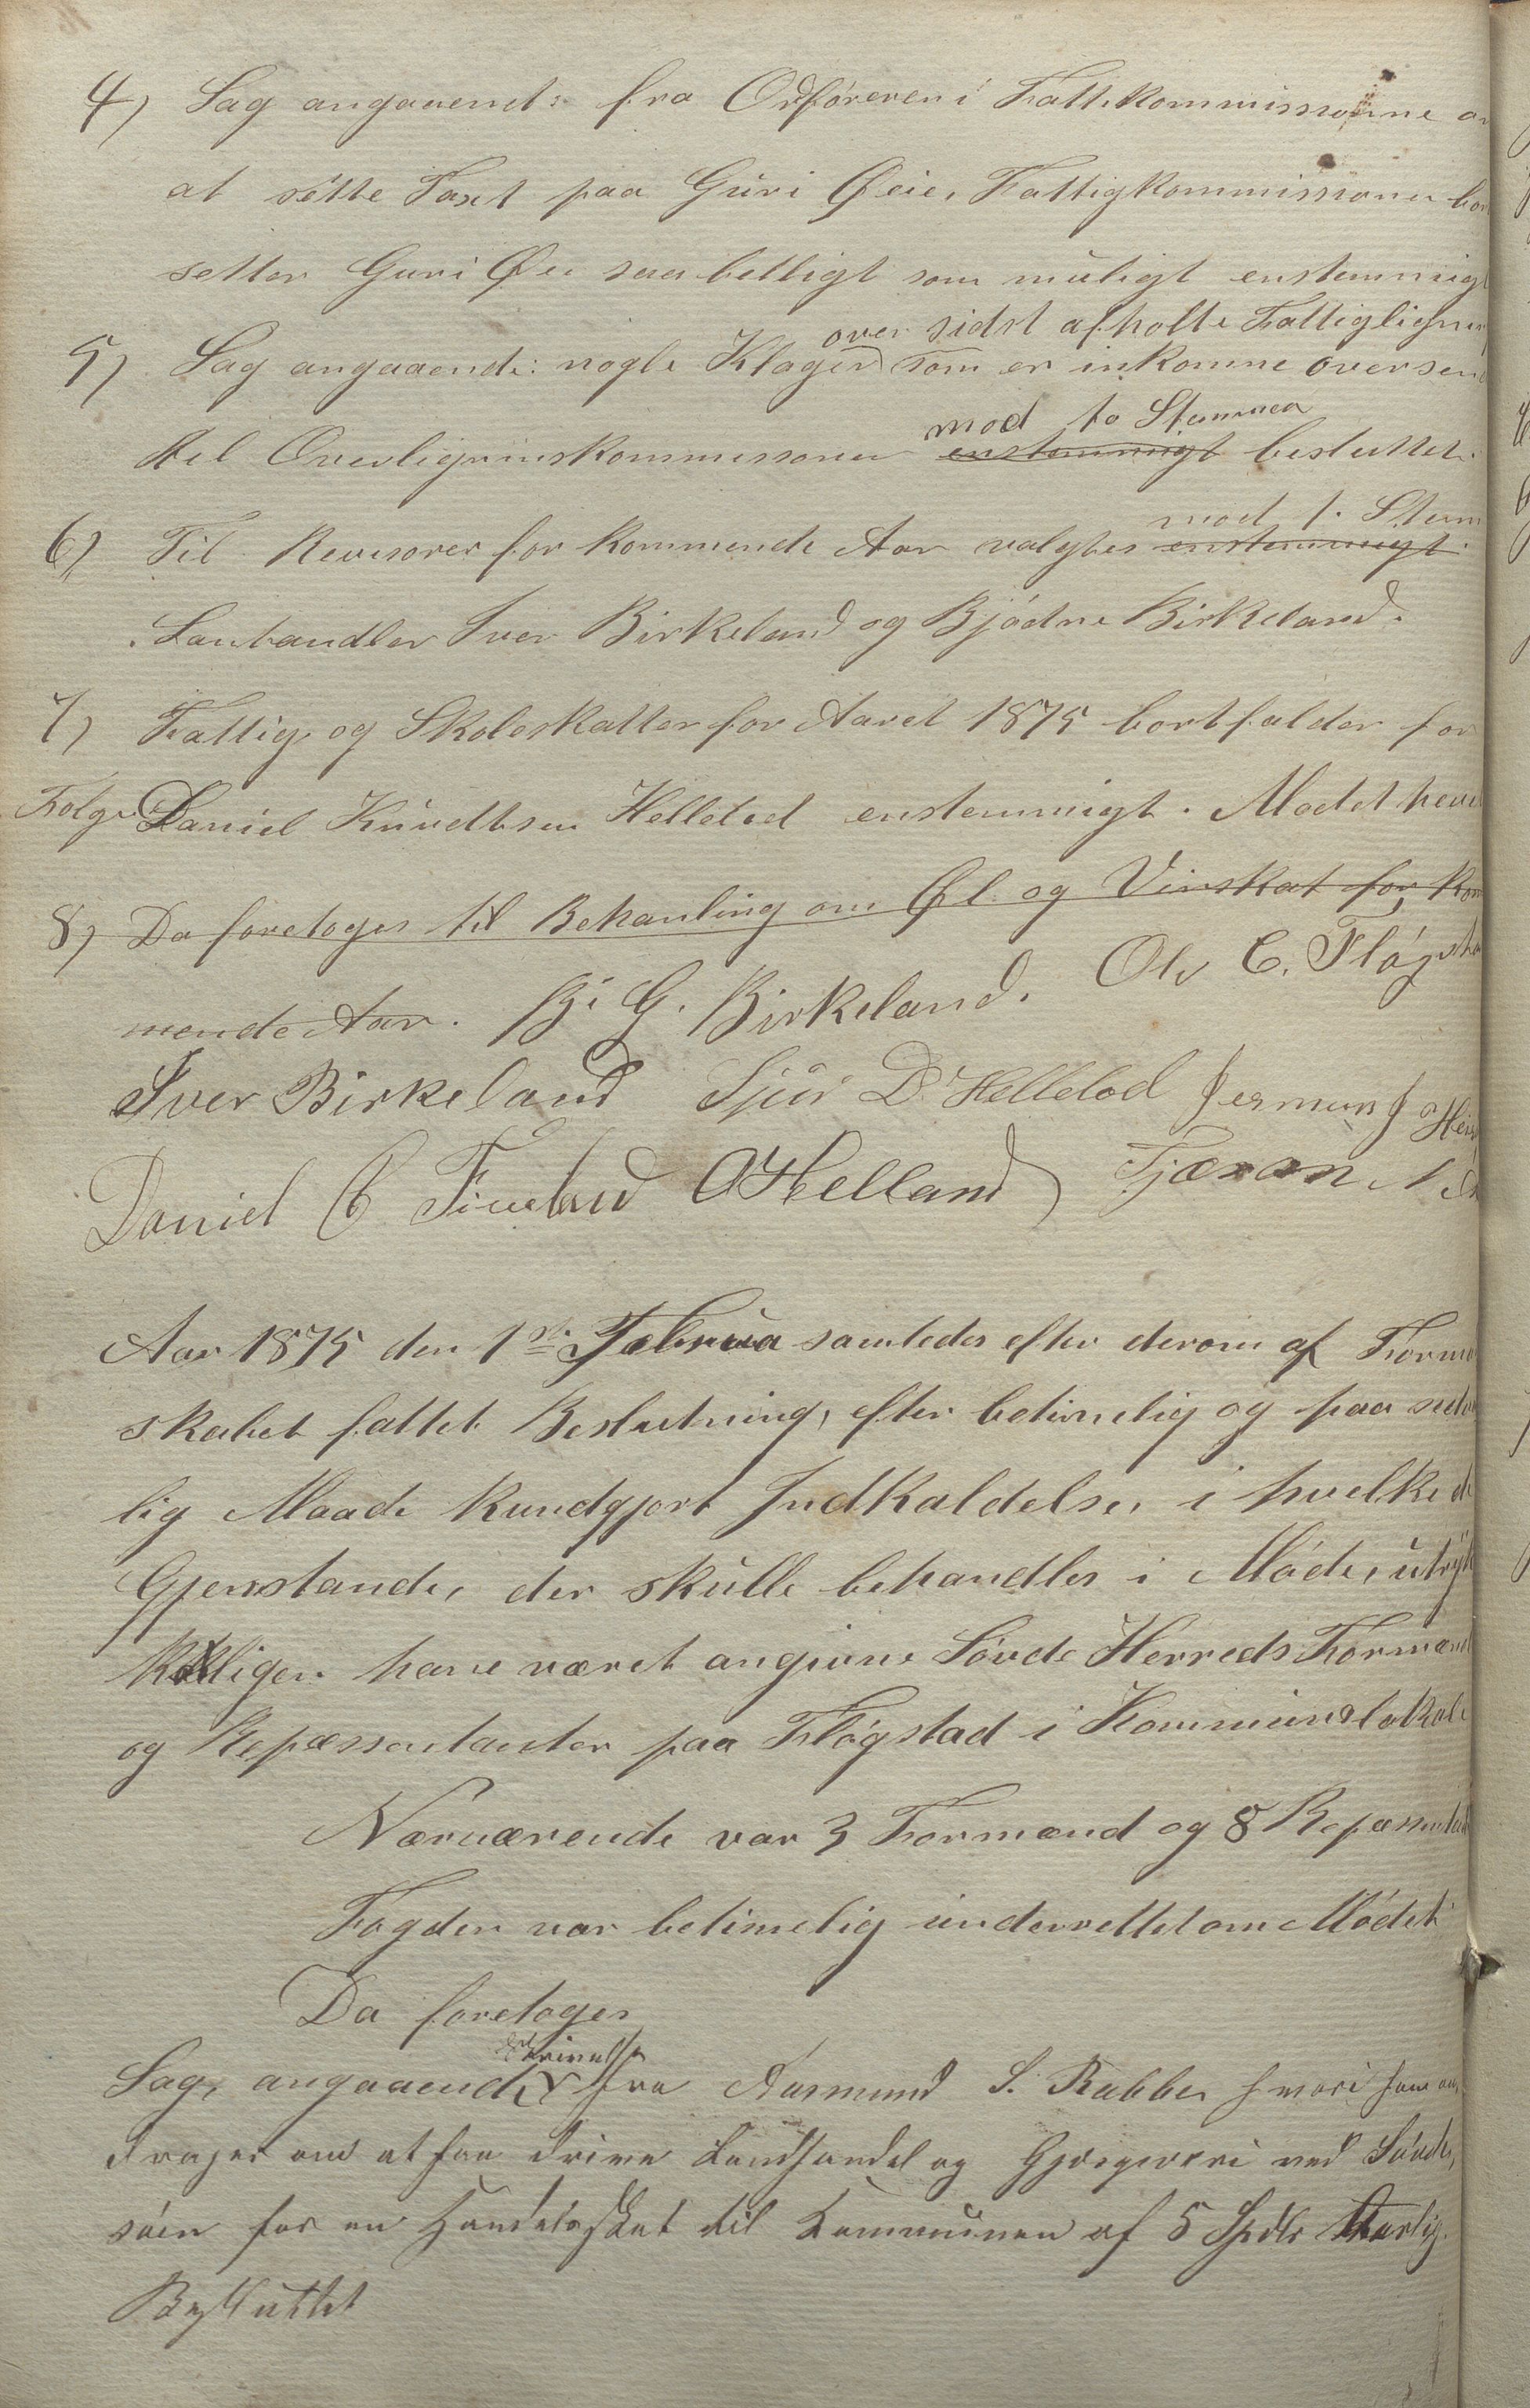 4) Sag angaaende: fra Ordføreren i Fattikommissionne
at sette Taxt paa Guri Øeie, Fattigkommissionen
setter Guri Øie saa billigt som muligt enstemmigt
over sidst afholte Fattiglignin
5) Sag angaaende: nogle Klager som er inkomne oversen
mod to Stemmer
til Overligninskommissonen enstemmigt besluttet.
mod 1. Stem
6) Til Revisorer for kommende Aar valgtes enstemmigt.
Lanhandler Iver Birkeland og Bjódne Birkeland.
7) Fattig, og Skoleskatter for Aaret 1875 bortfalder for
Følge Daniel Knudtsen Hellelod enstemmigt. Mødet hevet
8) Da foretoges til Behanling om Øl og Vinskat for kom
mende Aar. B. G. Birkeland. Ole C. Fløgsta
Iver Birkeland Sjur D. Hellelod Jermun J Hei
Daniel C Fiveland OHelland Tjæran N
Aar 1875 den 1ste Februa samledes efter derom af Forma
skabet fattet Beslutning, efter betimelig og paa sedva
lig Maade kundgjort Indkaldelse, i hvilke de
Gjenstande, der skulle behandles i Møde, utryk
kelligen have været angivne Søvde Herreds Formænd
og Repæssentanter paa Fløgstad i Kommunelokale
Nærværende var 3 Formænd og 8 Repæssenta
Fogden var betimelig underrettet om Mødet
Da foretoges
Skrivelse
Sag, angaaende fra Aasmund S. Rabbe, hvori han an
drager om at faa drive Landhandel og Gjæsgiveri ved Søvde,
søen for en Handelsskat til Kommunen af 5 Spdlr Aarlig.
Besluttet